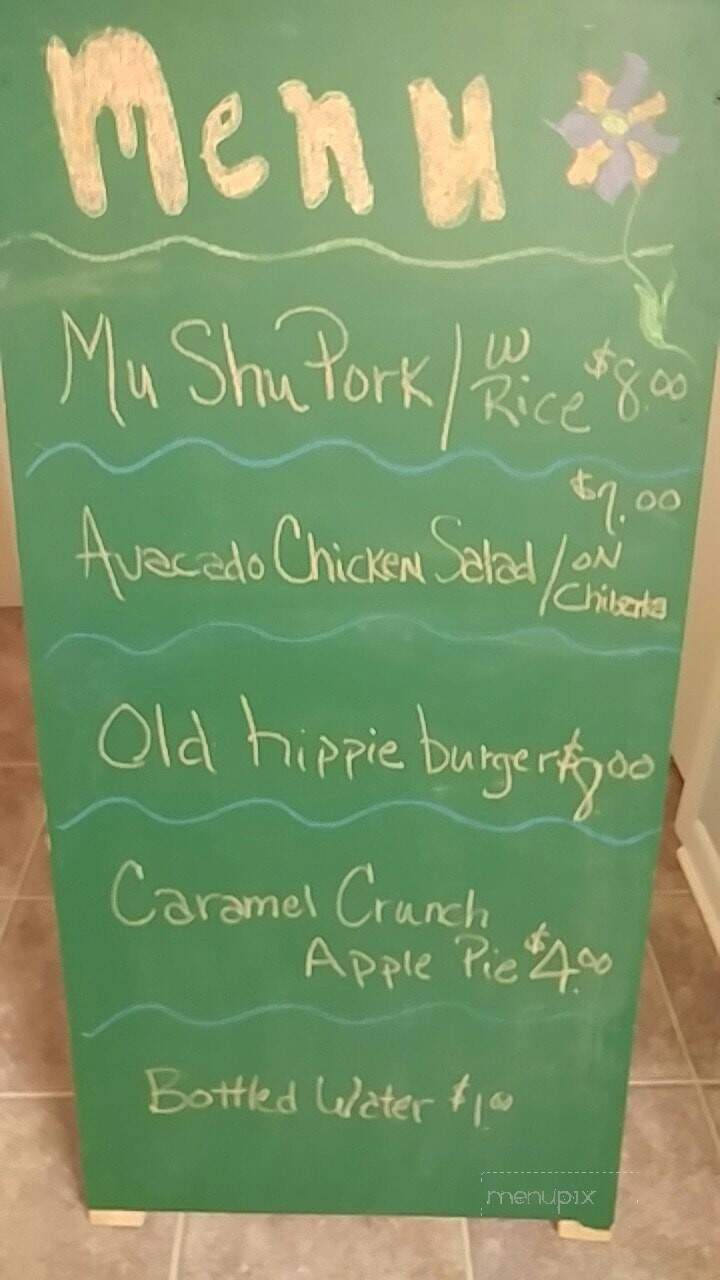 Menu
Mu Shu Pork / W Rice $8.00
Avacado Chicken Salad / ON $7.00
Old hippie burger $8.00
Caramel Crunch
Apple Pie $4.00
Bottled Water $1.00
menupix